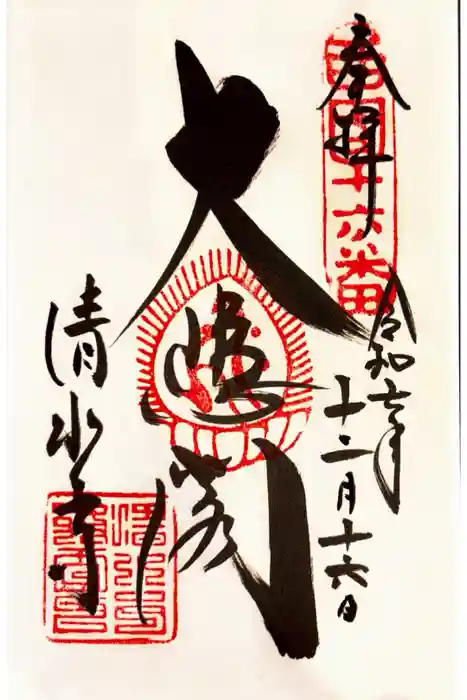 奉拝
西國十六番
令和 年
十二月十六日
大悲閣
清水寺